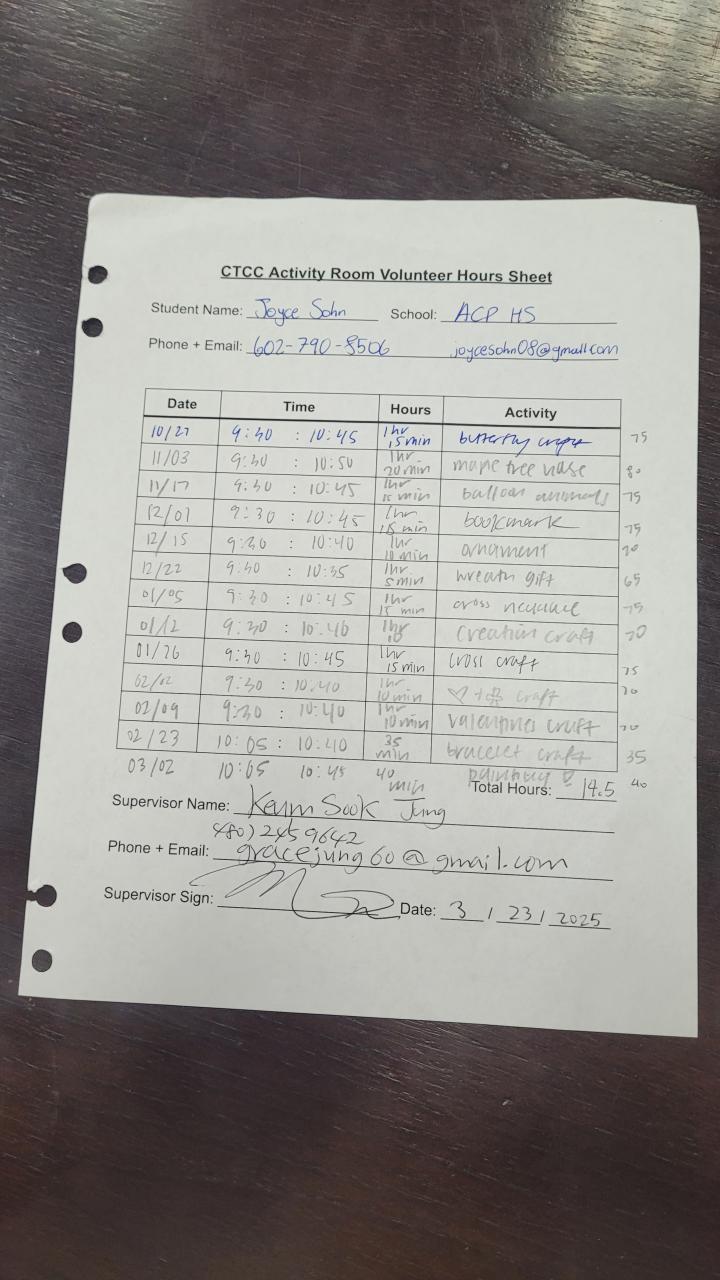 CTCC Activity Room Volunteer Hours Sheet
Student Name: Joyce Sohn School: ACP HS
Phone + Email: 602-790-8506 joycesohn08@gmail.com
Date Time Hours Activity
10/27 9:30 : 10:45 1hr 15min butterfly 75
11/03 9:30 : 10:50 1hr 20min tree 80
11/17 9:30 : 10:45 1hr 15 min balloon animals 75
12/01 9:30 : 10:45 1hr 15 min bookmark 75
12/15 9:30 : 10:40 1hr 10 min ornament 70
12/22 9:30 : 10:35 1hr. 5min wreath gift 65
01/05 9:30 : 10:45 1hr 15 min cross 75
01/12 9:30 : 10:40 1hr 10 creation craft 70
01/26 9:30 : 10:45 1hr 15min cross craft 75
02/02 9:30 : 10:40 1hr 10min craft 70
02/09 9:30 : 10:40 1hr 10min valentines craft 70
02/23 10:05 : 10:40 35 min bracelet craft 35
03/02 10:05 10:45 40 min painting 40
Total Hours: 14.5
Supervisor Name: Keum Sook Jung
(480)245 9642
Phone + Email: gracejung60@gmail.com
Supervisor Sign: Date: 3 / 23 / 2025